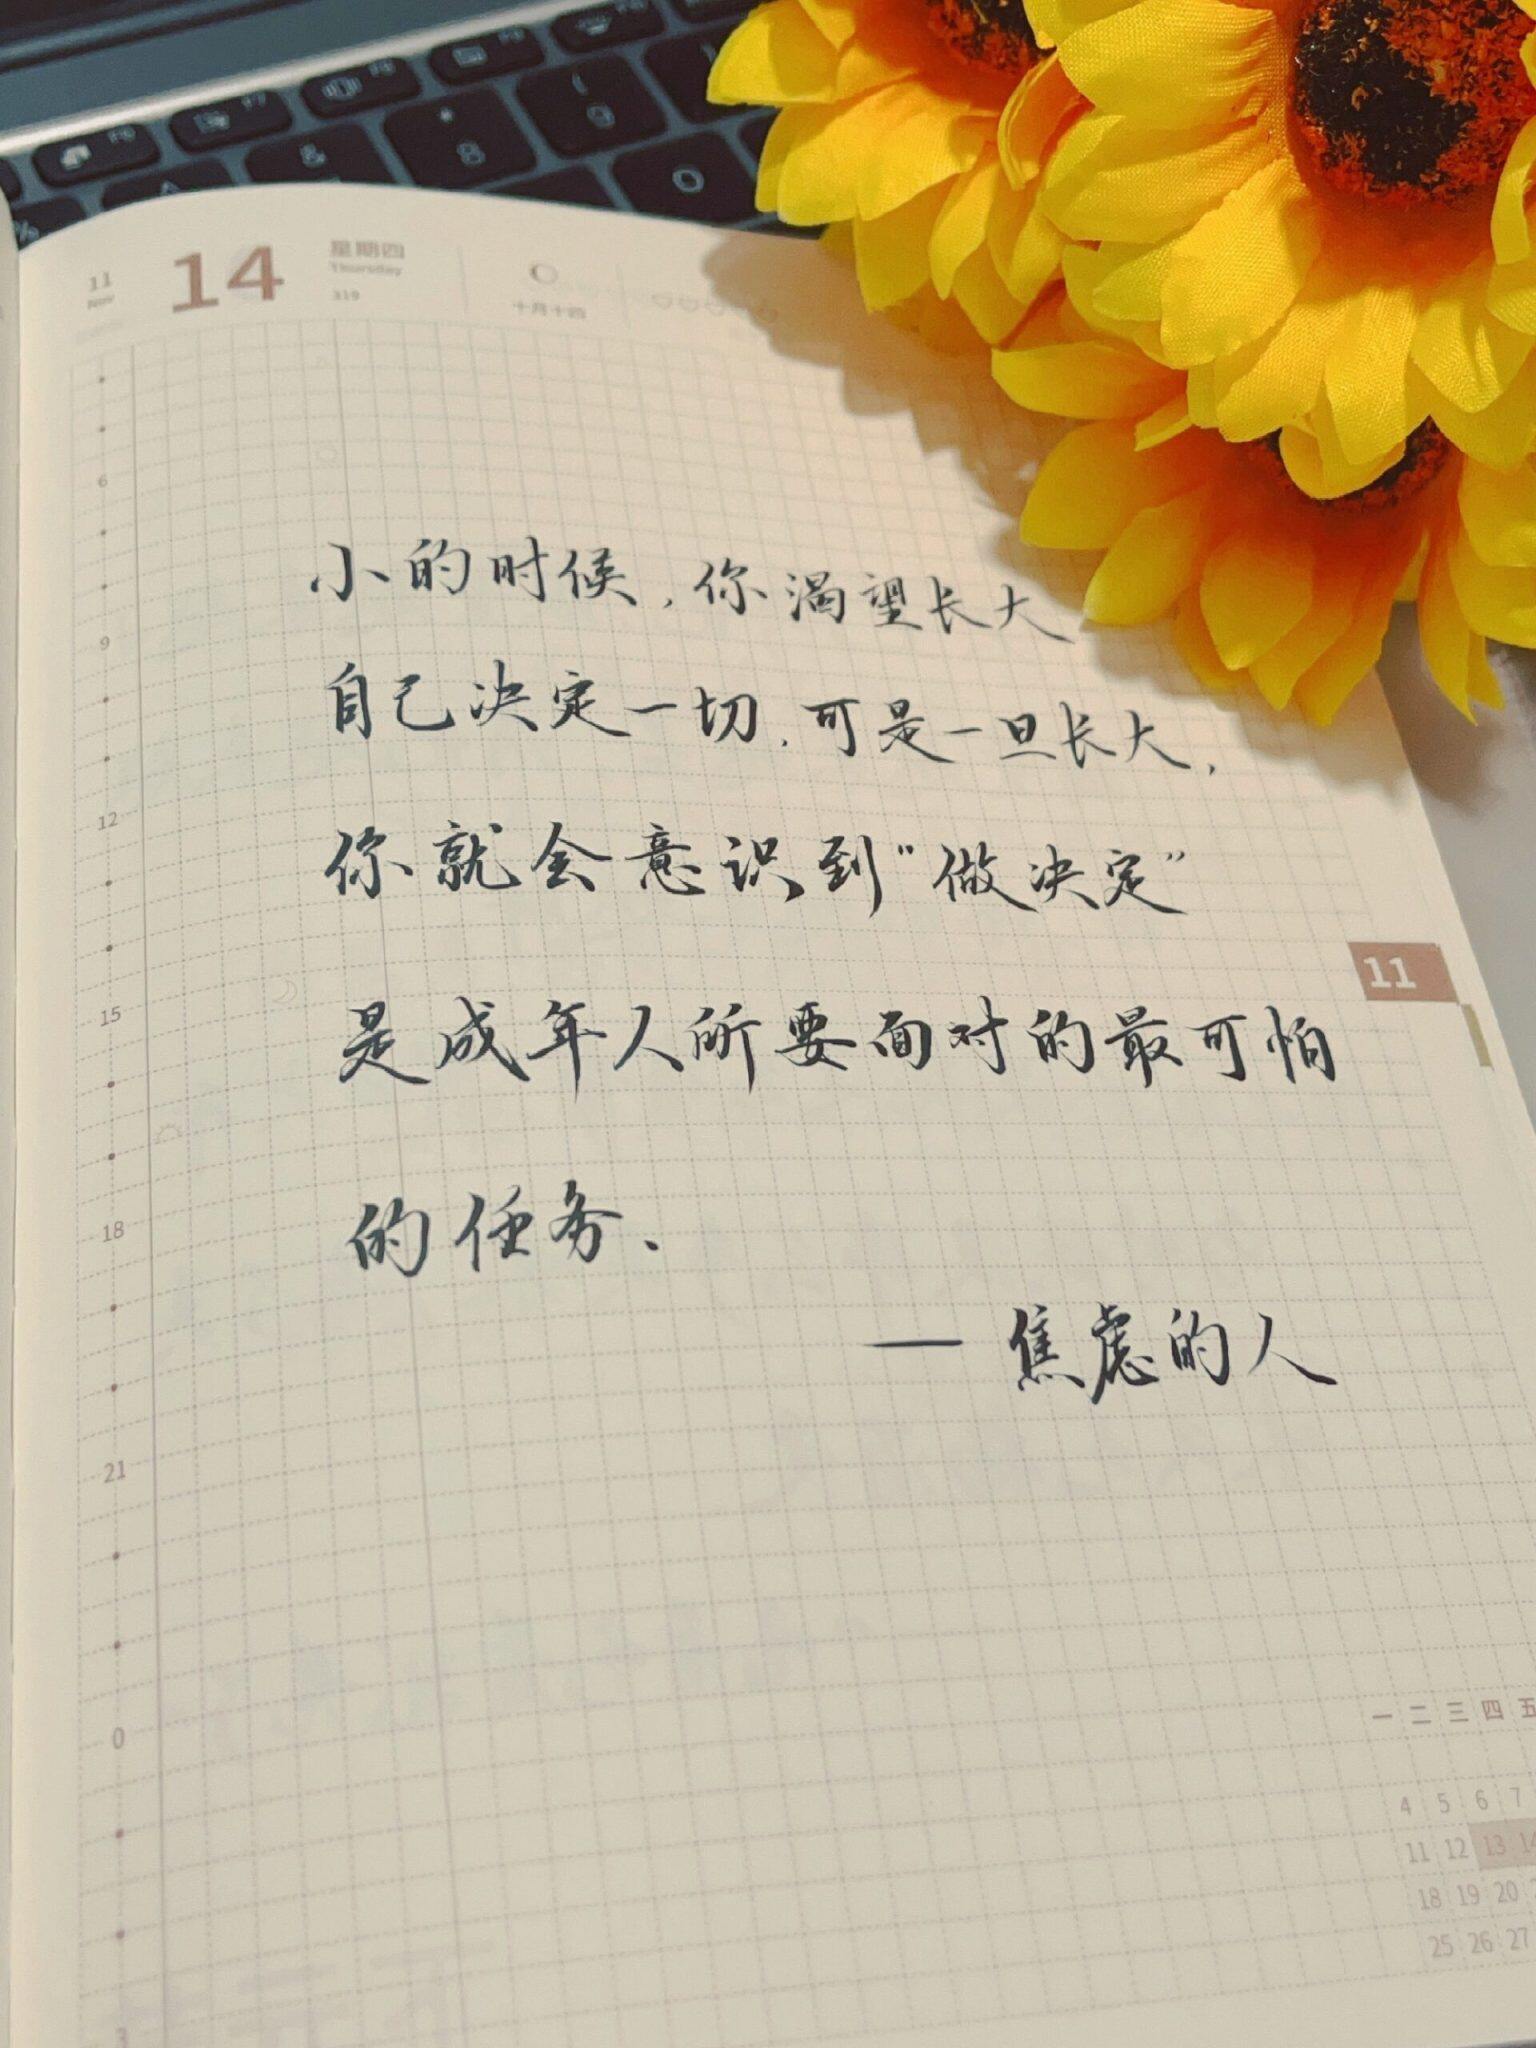 11 14 星期四
Nov Thursday
319 十月十四
小的时候,你渴望长大
自己决定一切,可是一旦长大,
你就会意识到“做决定”
是成年人所要面对的最可怕
的任务.
— 焦虑的人
6
9
12
15
18
21
0
3
11
一 二 三 四 五
4 5 6 7
11 12 13 14
18 19 20
25 26 27
F6 F7 F8 F9
& * 8 ( 9 ) 0
%